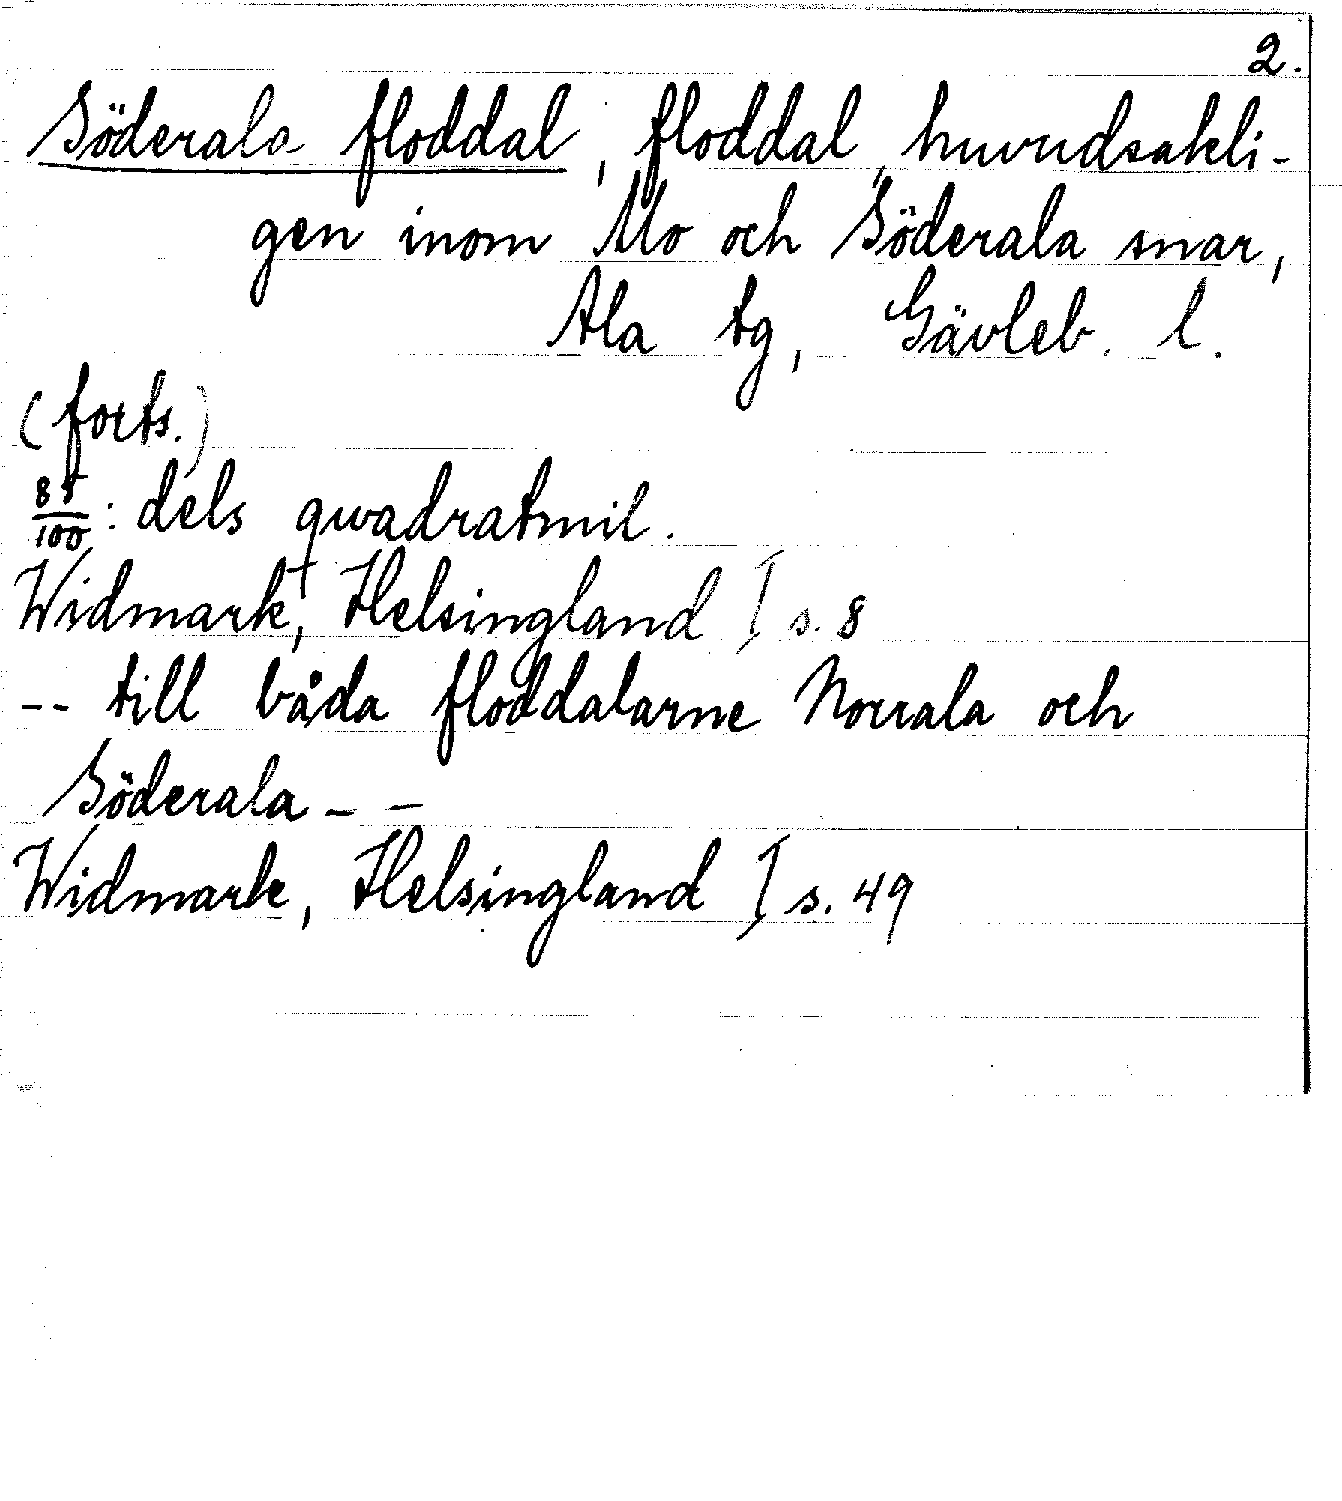 2.
Söderala floddal, floddal, huvudsakli-
gen inom Mo och Söderala snar,
Ala tg, Gävleb. l.
(forts.)
85/100: dels qwadratmil.
Widmark, Helsingland I s. 8
-- till båda floddalarne Norrala och
Söderala --
Widmark, Helsingland I s. 49